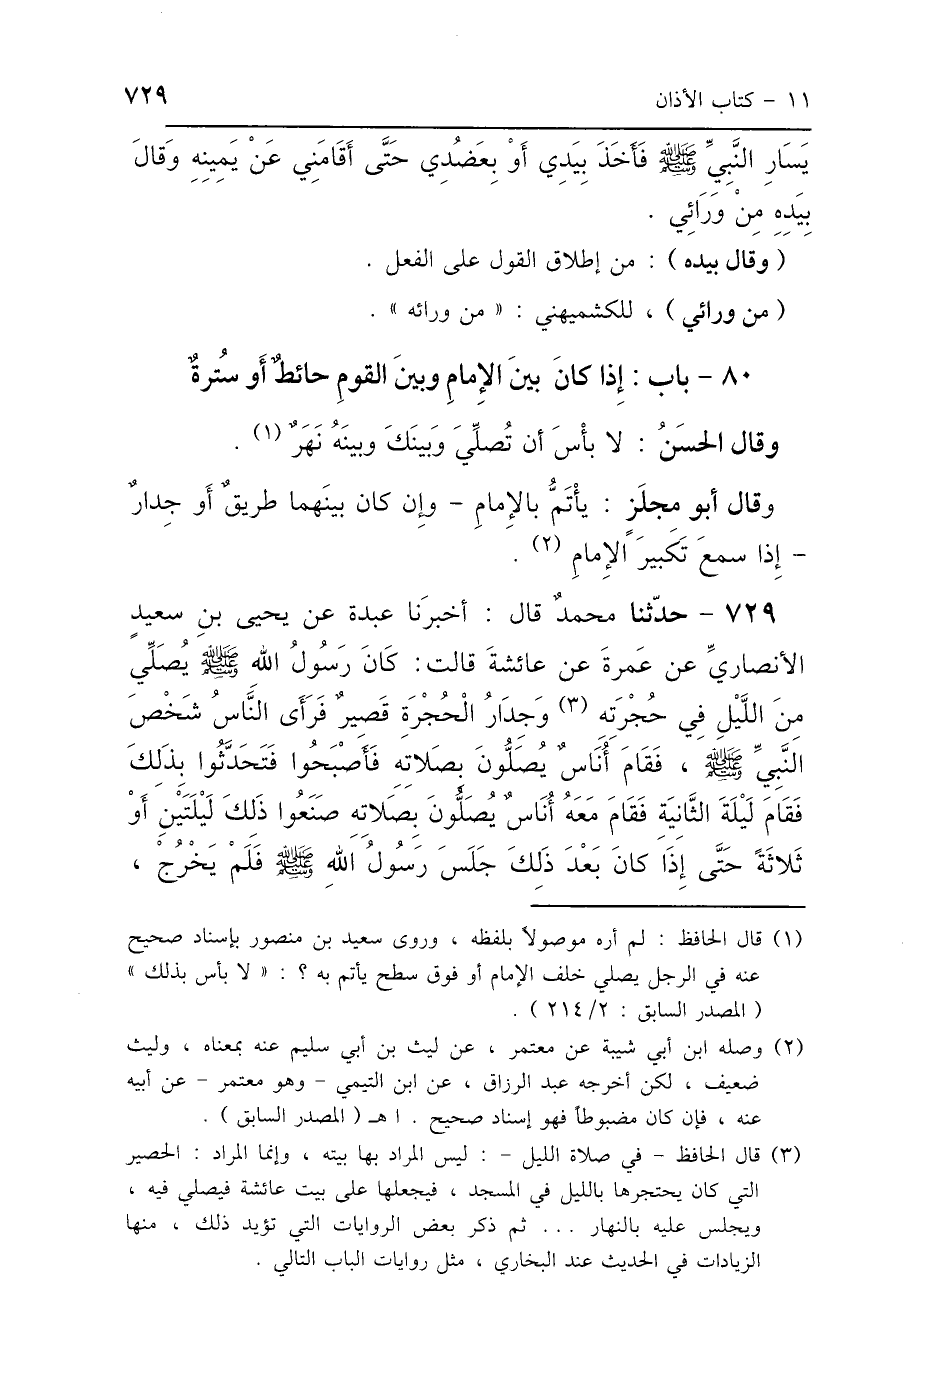 ١١ - كتاب الأذان ٧٢٩
يَسَارِ النَّبِيِّ ﷺ فَأَخَذَ بِيَدِي أَوْ بِعَضُدِي حَتَّى أَقَامَنِي عَنْ يَمِينِهِ وَقَالَ
بِيَدِهِ مِنْ وَرَائِي .
( وقال بيده ) : من إطلاق القول على الفعل .
( من ورائي ) ، للكشميهني : « من ورائه » .
٨٠ - باب : إِذا كانَ بينَ الإِمامِ وبينَ القومِ حائطٌ أَو سُترةٌ
وقال الحسَنُ : لا بأْسَ أن تُصلِّيَ وَبينَكَ وبينَهُ نَهَرٌ (١) .
وقال أبو مجلَزٍ : يأْتَمُّ بالإِمامِ - وإن كان بينَهما طريقٌ أَو جدارٌ
- إِذا سمعَ تَكبيرَ الإِمامِ (٢) .
٧٢٩ - حدّثنا محمدٌ قال : أخبرَنا عبدة عن يحيى بنِ سعيدٍ
الأنصاريِّ عن عَمرةَ عن عائشةَ قالت : كَانَ رَسُولُ اللهِ ﷺ يُصَلِّي
مِنَ اللَّيْلِ فِي حُجْرَتِهِ (٣) وَجِدَارُ الْحُجْرَةِ قَصِيرٌ فَرَأَى النَّاسُ شَخْصَ
النَّبِيِّ ﷺ ، فَقَامَ أُنَاسٌ يُصَلُّونَ بِصَلاتِهِ فَأَصْبَحُوا فَتَحَدَّثُوا بِذَلِكَ
فَقَامَ لَيْلَةَ الثَّانِيَةِ فَقَامَ مَعَهُ أُنَاسٌ يُصَلُّونَ بِصَلاتِهِ صَنَعُوا ذَلِكَ لَيْلَتَيْنِ أَوْ
ثَلاثَةً حَتَّى إِذَا كَانَ بَعْدَ ذَلِكَ جَلَسَ رَسُولُ اللهِ ﷺ فَلَمْ يَخْرُجْ ،
(١) قال الحافظ : لم أره موصولاً بلفظه ، وروى سعيد بن منصور بإسناد صحيح
عنه في الرجل يصلي خلف الإمام أو فوق سطح يأتم به ؟ : « لا بأس بذلك »
( المصدر السابق : ٢/ ٢١٤ ) .
(٢) وصله ابن أبي شيبة عن معتمر ، عن ليث بن أبي سليم عنه بمعناه ، وليث
ضعيف ، لكن أخرجه عبد الرزاق ، عن ابن التيمي - وهو معتمر - عن أبيه
عنه ، فإن كان مضبوطاً فهو إسناد صحيح . ا هـ ( المصدر السابق ) .
(٣) قال الحافظ - في صلاة الليل - : ليس المراد بها بيته ، وإنما المراد : الحصير
التي كان يحتجرها بالليل في المسجد ، فيجعلها على بيت عائشة فيصلي فيه ،
ويجلس عليه بالنهار ... ثم ذكر بعض الروايات التي تؤيد ذلك ، منها
الزيادات في الحديث عند البخاري ، مثل روايات الباب التالي .